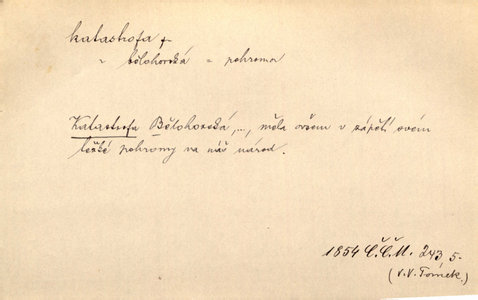 katastrofa f.
~ bělohorská = pohroma
Katastrofa Bělohorská, ..., měla ovšem v zápětí svém
těžké pohromy na náš národ.
1854 Č.Č.M. 243 5.
(V.V. Tomek.)